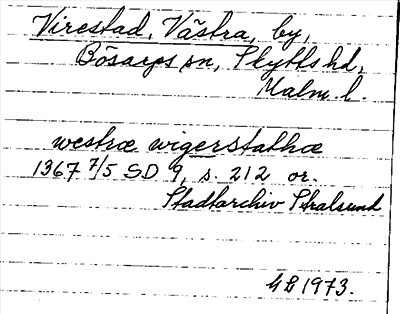 Virestad, Västra, by,
Bösarps sn, Skytts hd,
Malm. l.
westræ wigerstathæ
1367 7/5 SD 9, s. 212 or.
Stadtarchiv Stralsund
GB 1973.